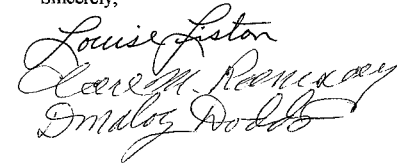 Sincerely,
Louise Liston
Clare M. Ramsay
D Maloy Dodds